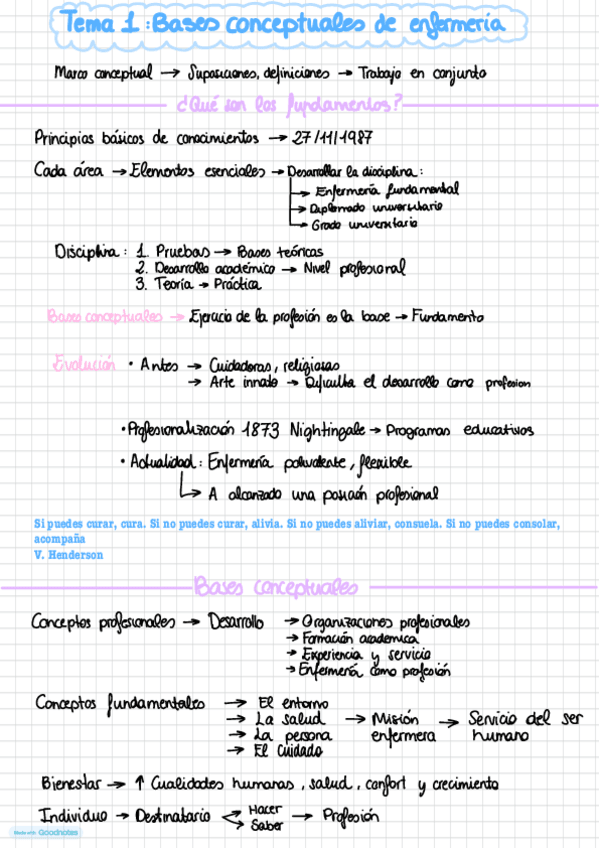 Tema 1: Bases conceptuales de enfermería
Marco conceptual → Suposiciones, definiciones → Trabajo en conjunto
¿Qué son los fundamentos?
Principios básicos de conocimientos → 27/11/1987
Cada área → Elementos esenciales → Desarrollar la disciplina:
→ Enfermería fundamental
→ Diplomado universitario
→ Grado universitario
Disciplina: 1. Pruebas → Bases teóricas
2. Desarrollo académico → Nivel profesional
3. Teoría → Práctica
Bases conceptuales → Ejercicio de la profesión es la base → Fundamento
Evolución • Antes → Cuidadoras, religiosas
→ Arte innato → Dificulta el desarrollo como profesion
• Profesionalización 1873 Nightingale → Programas educativos
• Actualidad: Enfermería polivalente, flexible
↳ A alcanzado una posición profesional
Si puedes curar, cura. Si no puedes curar, alivia. Si no puedes aliviar, consuela. Si no puedes consolar,
acompaña
V. Henderson
Bases conceptuales
Conceptos profesionales → Desarrollo → Organizaciones profesionales
→ Formación academica
→ Experiencia y servicio
→ Enfermería como profesión
Conceptos fundamentales → El entorno
→ La salud → Misión → Servicio del ser
→ La persona enfermera humano
→ El Cuidado
Bienestar → ↑ Cualidades humanas, salud, confort y crecimiento
Individuo → Destinatario < Hacer → Profesión
Saber
Made with Goodnotes